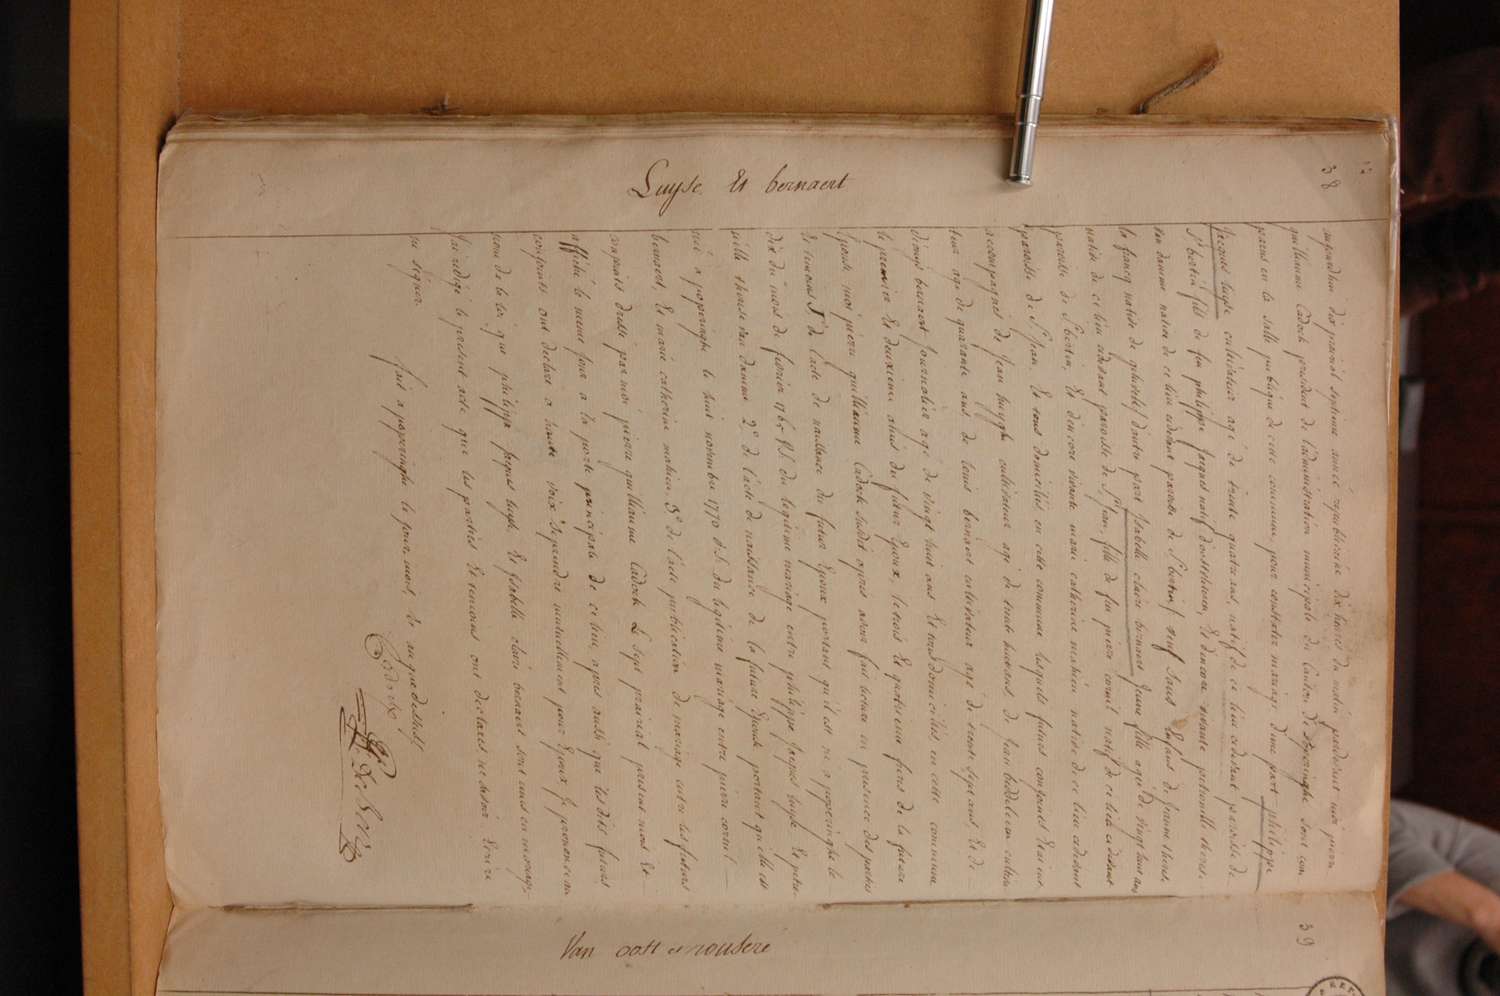 38
Luyse Et bernaert
aujourdhui dix prairial septieme année republicaine dix heures du matin pardevant moi pierre
guillaume Cadock president de l'administration municipale du Canton de poperinghe sont com
parus en la salle publique de cette commune, pour contracter mariage d'une part philippe
Jacques luyse cultivateur agé de trente quatre ans, natif de ce lieu residant paroisse de
St bertin fils de feu philippe Jacques natif et d'encore vivante petronille therese
van damme native de ce lieu residant paroisse de St bertin veuf sans Enfans de Jeanne therese
le francq native de d'autre part Isabelle claire bernaert Jeune fille agée de vingt huit ans
native de ce lieu residant paroisse de St Jan, fille de feu pierre cornil natif de ce lieu residant
paroisse de St bertin, Et d'encore vivante marie catherine mahieu native de ce lieu residant
paroisse de St Jan, Et tous domiciliés en cette commune lesquels futurs conjoints étaient
accompagnés de Jean huyghe cultivateur agé de trente huit ans de Jean cultiva
teur agé de quarante ans de louis bernaert cultivateur agé de trente sept ans Et de
bernaert Journalier agé de vingt huit ans Et tous domiciliés en cette commune
le premier Et deuxieme amis du futur Epoux, le trois Et quatrieme freres de la future
Epouse, moi pierre guillaume Cadock susdit apres avoir fait lecture en presence des parties
Et temoins 1° de l'acte de naissance du futur Epoux portant qu'il est né a poperinghe le
dix du mois de fevrier 1765 V.S. du legitime mariage entre philippe Jacques luyse Et petro
nille therese van damme 2° de l'acte de naissance de la future Epouse portant qu'elle est
née a poperinghe le huit novembre 1770 V.S. du legitime mariage entre pierre cornil
bernaert Et marie catherine mahieu 3° de l'acte publication de mariage entre les futurs
conjoints dressé par moi pierre guillaume Cadock le sept prairial present mois Et
affiché le meme jour a la porte principale de ce lieu, apres aussi que les dits futurs
conjoints ont declaré a haute voix se prendre mutuellement pour Epoux je prononce au
nom de la loi que philippe Jacques luyse Et Isabelle claire bernaert sont unis en mariage
J'ai redigé le present acte que les parties Et temoins ont declarés ne savoir Ecrire
ni signer
fait a poperinghe le jour, mois, Et an que dessus
Cadock
39
Van oost et nousere